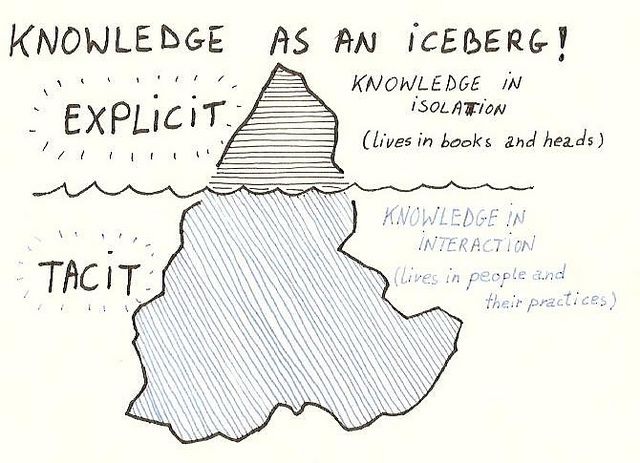 KNOWLEDGE AS AN iCEBERG!
EXPLiCiT
KNOWLEDGE iN
iSOLATiON
(lives in books and heads)
TACiT
KNOWLEDGE iN
iNTERACTiON
(lives in people and
their practices)